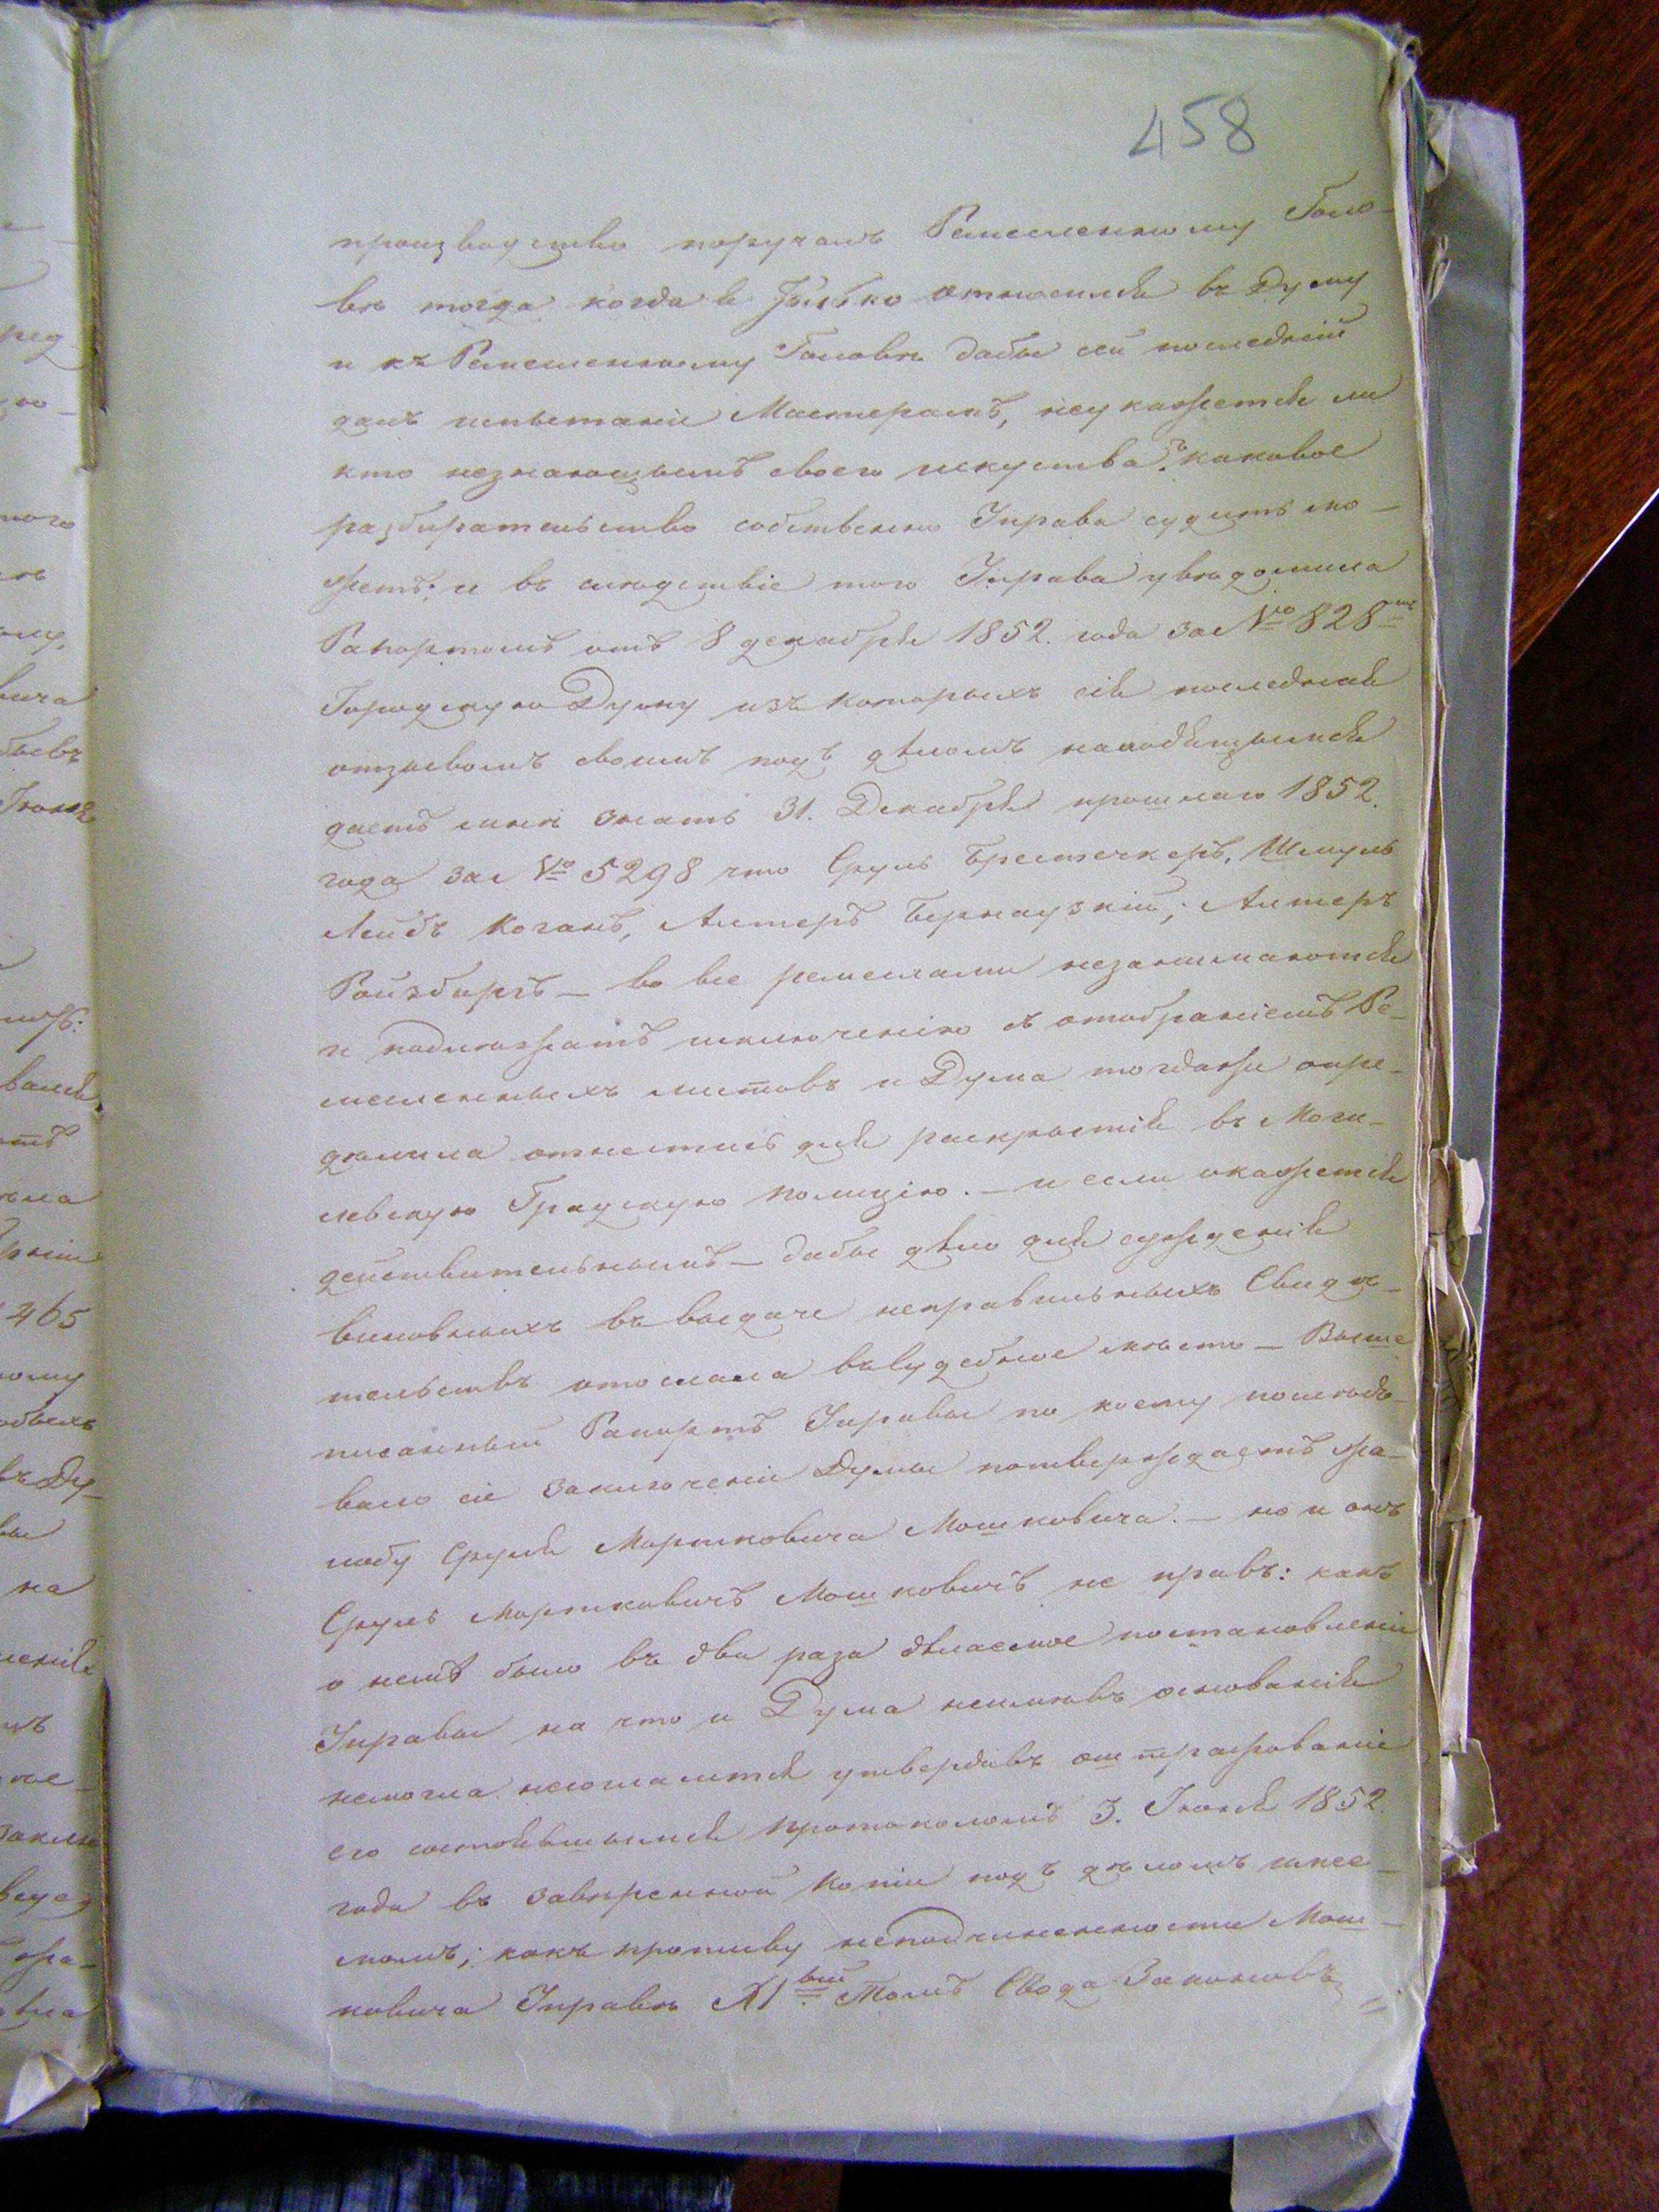 458
производство поручалъ Ремесленному Голо-
вѣ тогда когда я только относился въ Думу
и къ Ремесленному Головѣ дабы сей последній
далъ испытаніе Мастерамъ, неукажется ли
кто незнающымъ своего искуства? каковое
разбирательство собственно Управа судить мо-
жетъ: и въ слѣдствіе того Управа увѣдомила
Рапортомъ отъ 8 декабря 1852. года за № 828
Городскую Думу изъ которыхъ сія последняя
отзывомъ своимъ подъ дѣломъ находящымся
даетъ мнѣ знать 31. Декабря прошлаго 1852.
года за № 5298 что Сруль Брестечкеръ, Шмуль
Лейбъ Коганъ, Алтеръ Бернаузкій; Алтеръ
Ройзбургъ — во все ремеслами незанимаются
и подлежатъ исключенію съ отобраніемъ Ре-
месленныхъ листовъ и Дума тогдаже опре-
делила отнестись для раскрытія въ Моги-
левскую Градскую полицію. — и если окажется
действительнымъ — дабы дѣло для сужденія
виновныхъ въ выдаче неправильныхъ Свидѣ-
тельствъ отослала въ Судебное мѣсто — Выше
писанный Рапортъ Управы по коему послѣдо-
вало сіе заключеніе Думы потверждаетъ жа-
лобу Сруля Мортковича Мошковича. — но и онъ
Сруль Мортковичъ Мошковичъ не правъ: какъ
о немъ было въ два раза дѣлаемое постановленіе
Управы на что и Дума неимѣвъ основанія
немогла несогласится утвердивъ оштрафованіе
его состоявшымся протоколомъ 3. Іюня 1852
года въ завѣренной копіи подъ дѣломъ имее-
момъ; какъ противу неподчиненности Мош-
ковича Управѣ XI. вый Томъ Свода Законовъ